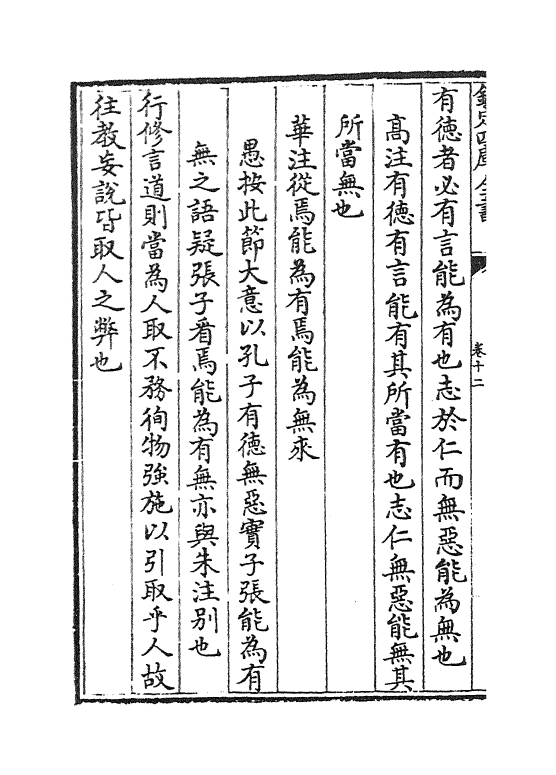 欽定四庫全書
卷十二
有德者必有言能為有也志於仁而無惡能為無也
高注有德有言能有其所當有也志仁無惡能無其
所當無也
華注從焉能為有焉能為無來
愚按此節大意以孔子有德無惡實子張能為有
無之語疑張子看焉能為有無亦與朱注別也
行修言道則當為人取不務徇物強施以引取乎人故
往教妄說皆取人之弊也